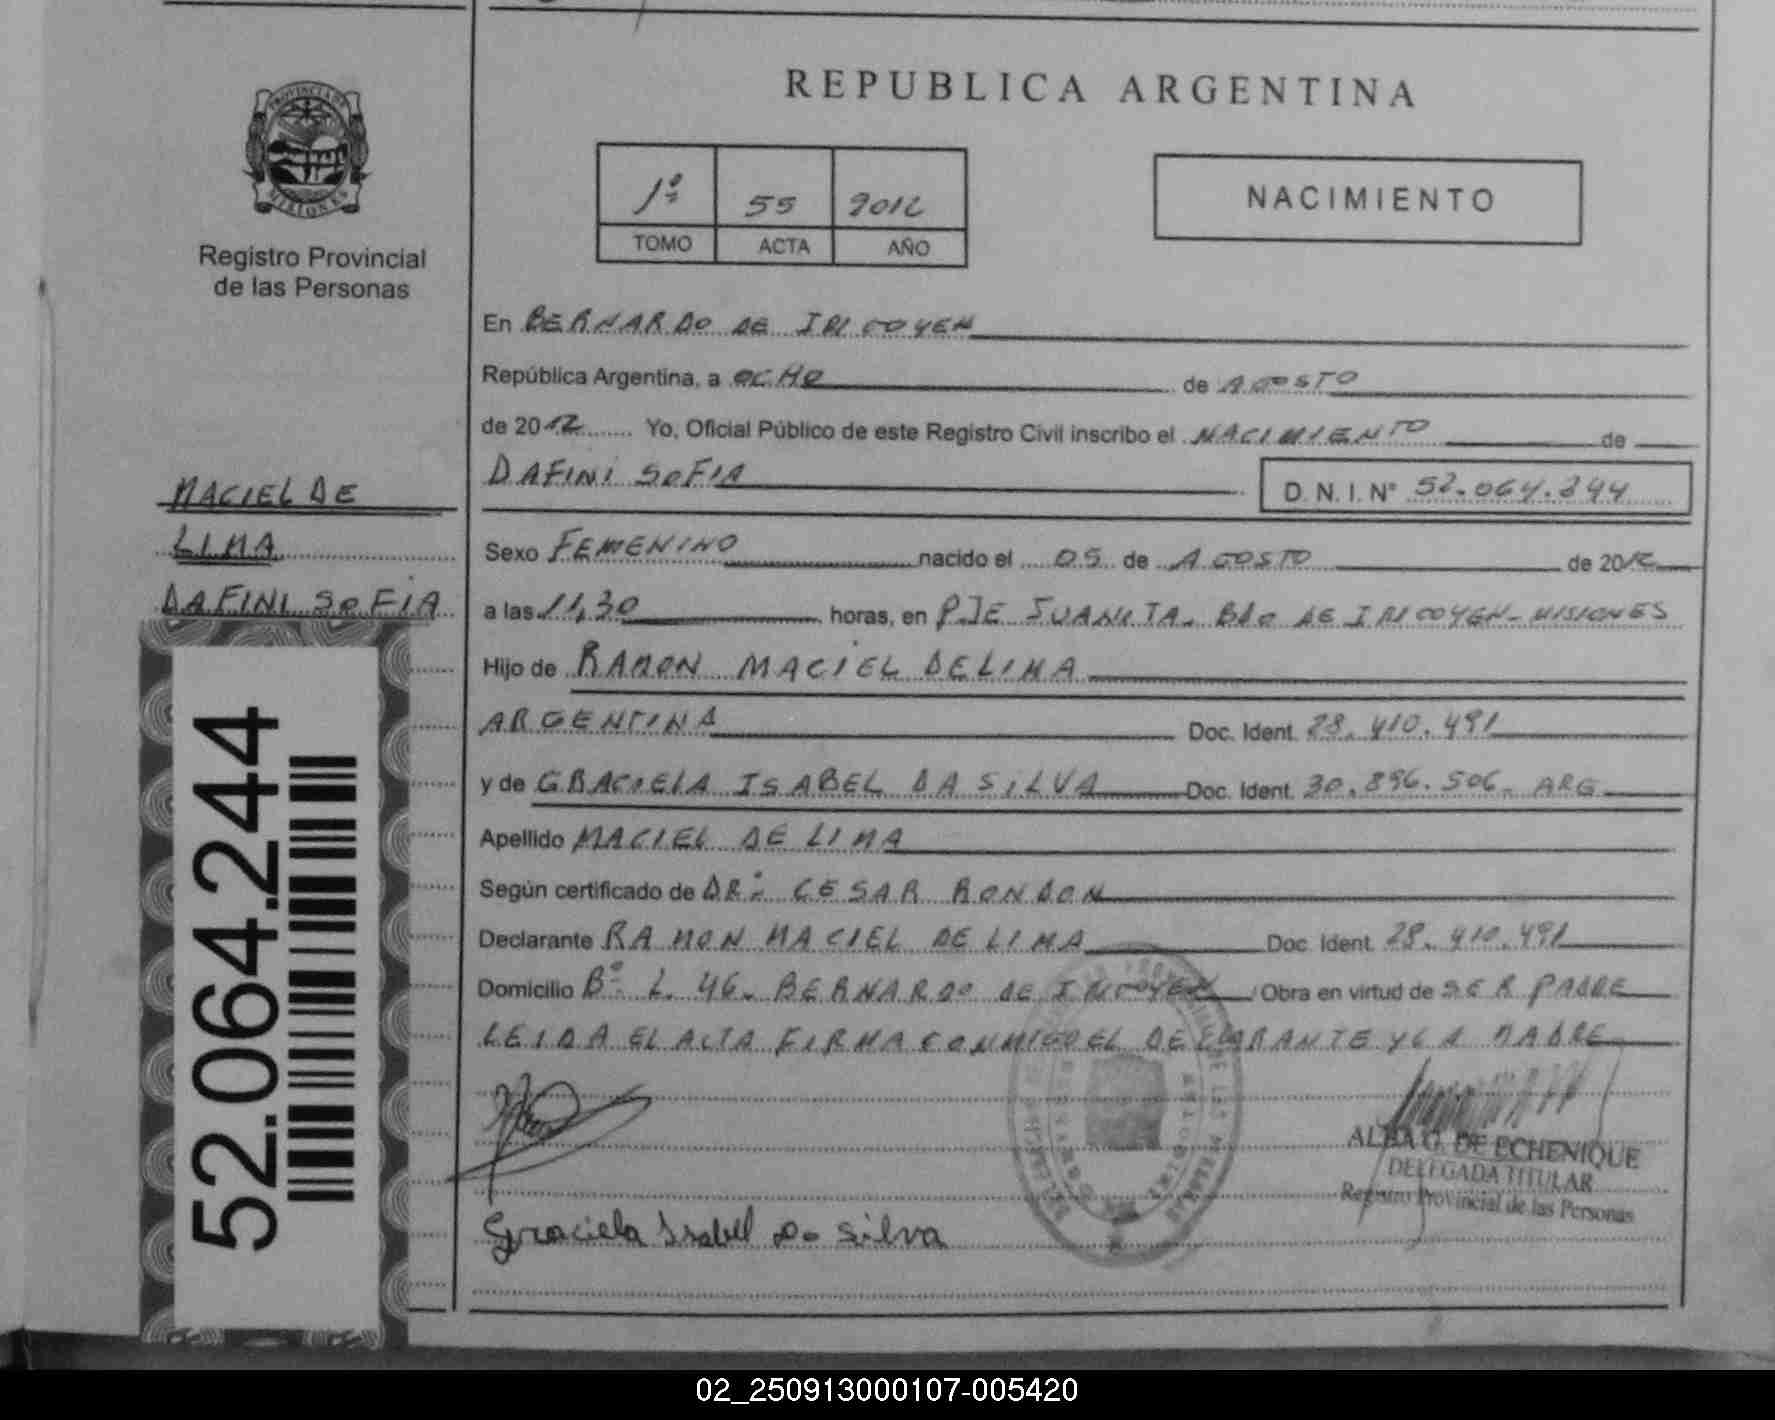 REPUBLICA ARGENTINA
PROVINCIA DE
MISIONES
Registro Provincial
de las Personas
1º 55 2012
TOMO ACTA AÑO
NACIMIENTO
En BERNARDO DE IRIGOYEN
República Argentina, a OCHO de AGOSTO
de 2012 Yo, Oficial Público de este Registro Civil inscribo el NACIMIENTO de
DAFINI SOFIA D. N. I. Nº 52.064.244
MACIEL DE
LIMA
DAFINI SOFIA
Sexo FEMENINO nacido el 05 de AGOSTO de 2012
a las 11,30 horas, en PJE JUANITA. BDO DE IRIGOYEN-MISIONES
Hijo de RAMON MACIEL DE LIMA
ARGENTINA Doc. Ident. 28.410.491
y de GRACIELA ISABEL DA SILVA Doc. Ident. 30.896.506. ARG
Apellido MACIEL DE LIMA
Según certificado de DR: CESAR RONDON
Declarante RAMON MACIEL DE LIMA Doc. Ident. 28.410.491
Domicilio Bº L. 46. BERNARDO DE IRIGOYEN Obra en virtud de SER PADRE
LEIDA EL ACTA FIRMA CONMIGO EL DECLARANTE Y LA MADRE
52.064.244
ALBA G. DE ECHENIQUE
DELEGADA TITULAR
Registro Provincial de las Personas
Graciela Isabel Da Silva
02_250913000107-005420